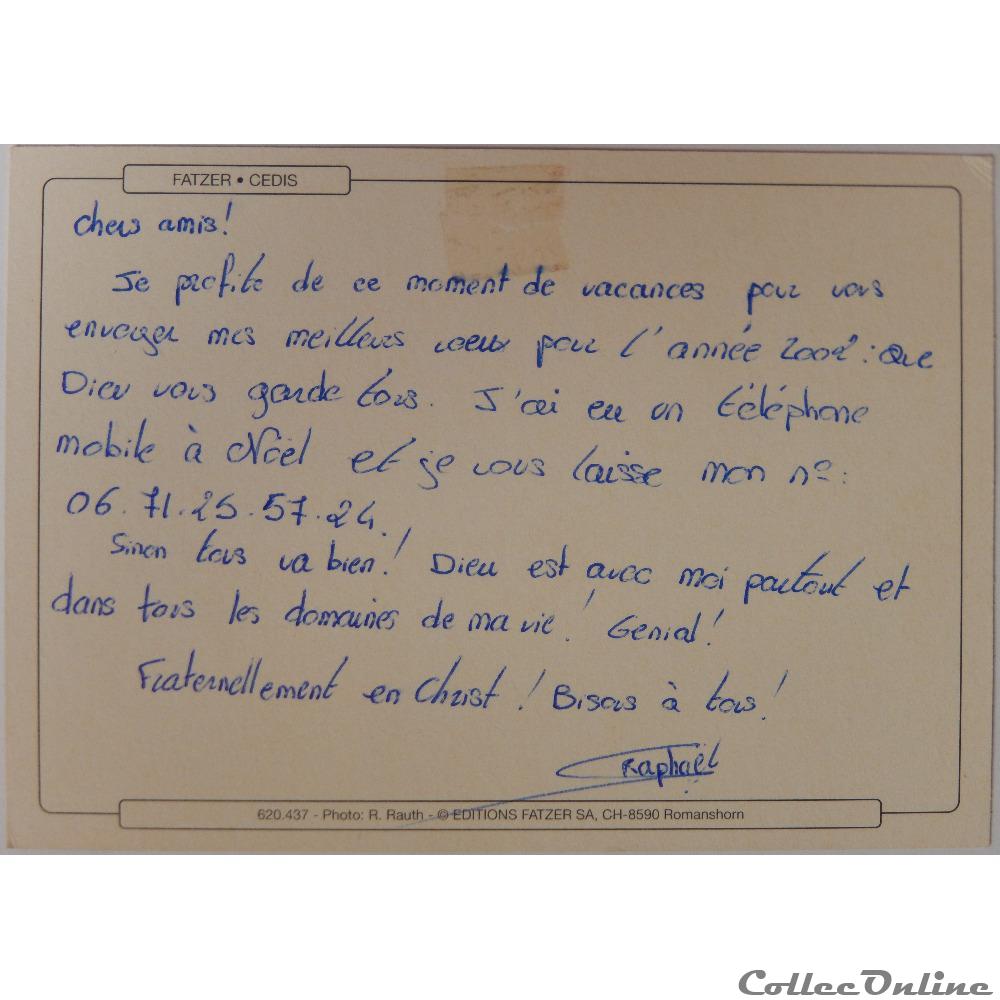 FATZER • CEDIS
chers amis!
Je profite de ce moment de vacances pour vous
envoyer mes meilleurs voeux pour l'année 2002 : que
Dieu vous garde tous. J'ai eu un téléphone
mobile à Noël et je vous laisse mon n° :
06.71.25.57.24.
Sinon tous va bien! Dieu est avec moi partout et
dans tous les domaines de ma vie! Genial!
Fraternellement en Christ! Bisous à tous!
Raphaël
620.437 - Photo: R. Rauth - © EDITIONS FATZER SA, CH-8590 Romanshorn
CollecOnline